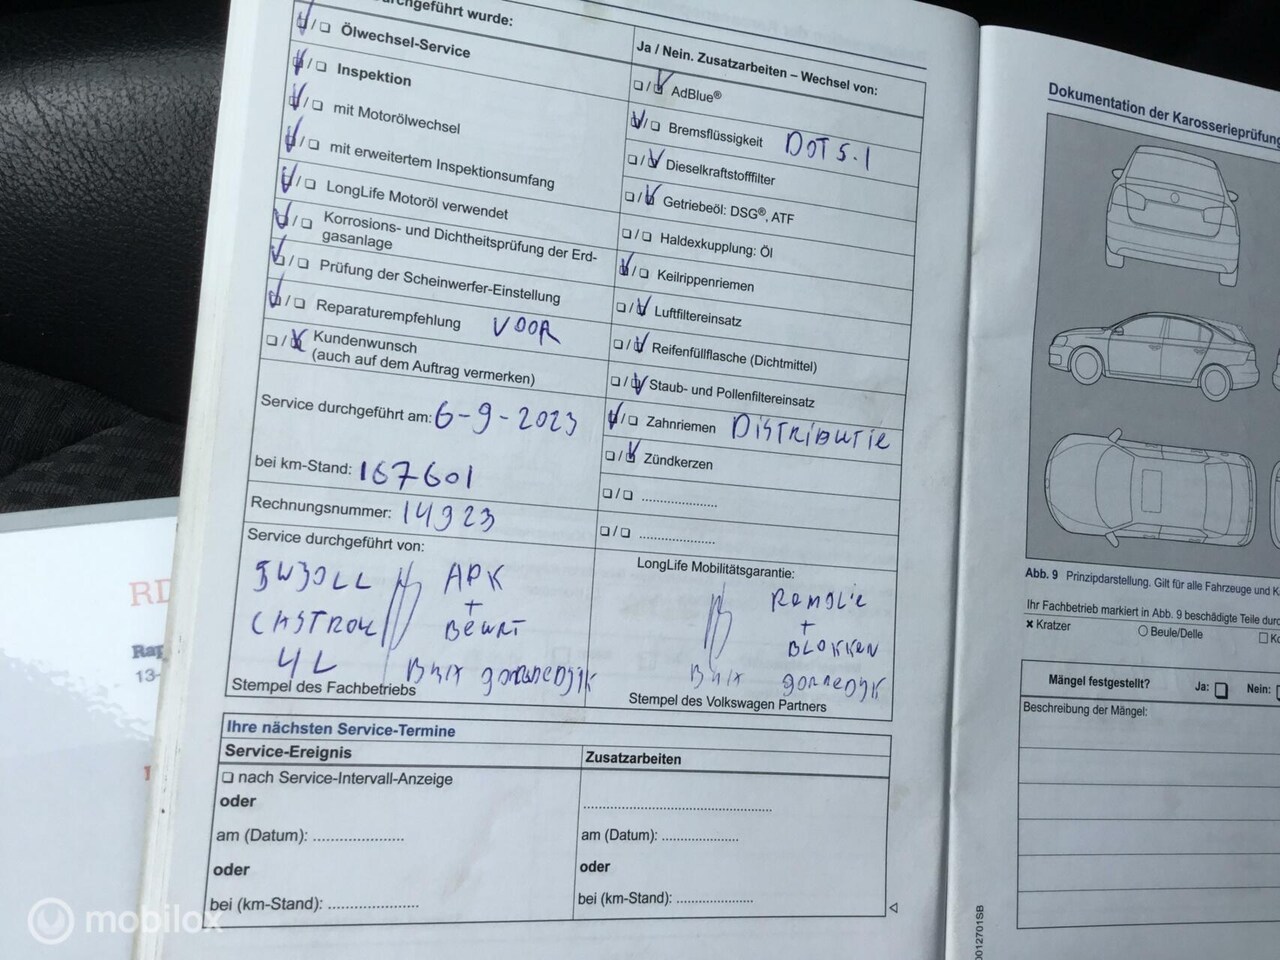 durchgeführt wurde:
Ölwechsel-Service
Inspektion
mit Motorölwechsel
mit erweitertem Inspektionsumfang
LongLife Motoröl verwendet
Korrosions- und Dichtheitsprüfung der Erd-
gasanlage
Prüfung der Scheinwerfer-Einstellung
Reparaturempfehlung VOOR
Kundenwunsch
(auch auf dem Auftrag vermerken)
Service durchgeführt am: 6-9-2023
bei km-Stand: 167601
Rechnungsnummer: 14923
Service durchgeführt von:
5W30LL
CASTROL
4L
APK
+
BEURT
Stempel des Fachbetriebs
Ja / Nein. Zusatzarbeiten – Wechsel von:
AdBlue®
Bremsflüssigkeit DOT 5.1
Dieselkraftstofffilter
Getriebeöl: DSG®, ATF
Haldexkupplung: Öl
Keilrippenriemen
Luftfiltereinsatz
Reifenfüllflasche (Dichtmittel)
Staub- und Pollenfiltereinsatz
Zahnriemen DISTRIBUTIE
Zündkerzen
LongLife Mobilitätsgarantie:
REMOLIE
+
BLOKKEN
Stempel des Volkswagen Partners
Ihre nächsten Service-Termine
Service-Ereignis
Zusatzarbeiten
nach Service-Intervall-Anzeige
oder
am (Datum):
oder
bei (km-Stand):
am (Datum):
oder
bei (km-Stand):
Dokumentation der Karosserieprüfung
Abb. 9 Prinzipdarstellung. Gilt für alle Fahrzeuge und K
Ihr Fachbetrieb markiert in Abb. 9 beschädigte Teile durc
x Kratzer
Beule/Delle
Mängel festgestellt? Ja: Nein:
Beschreibung der Mängel:
0012701SB
RD
Rap
13-
mobilox